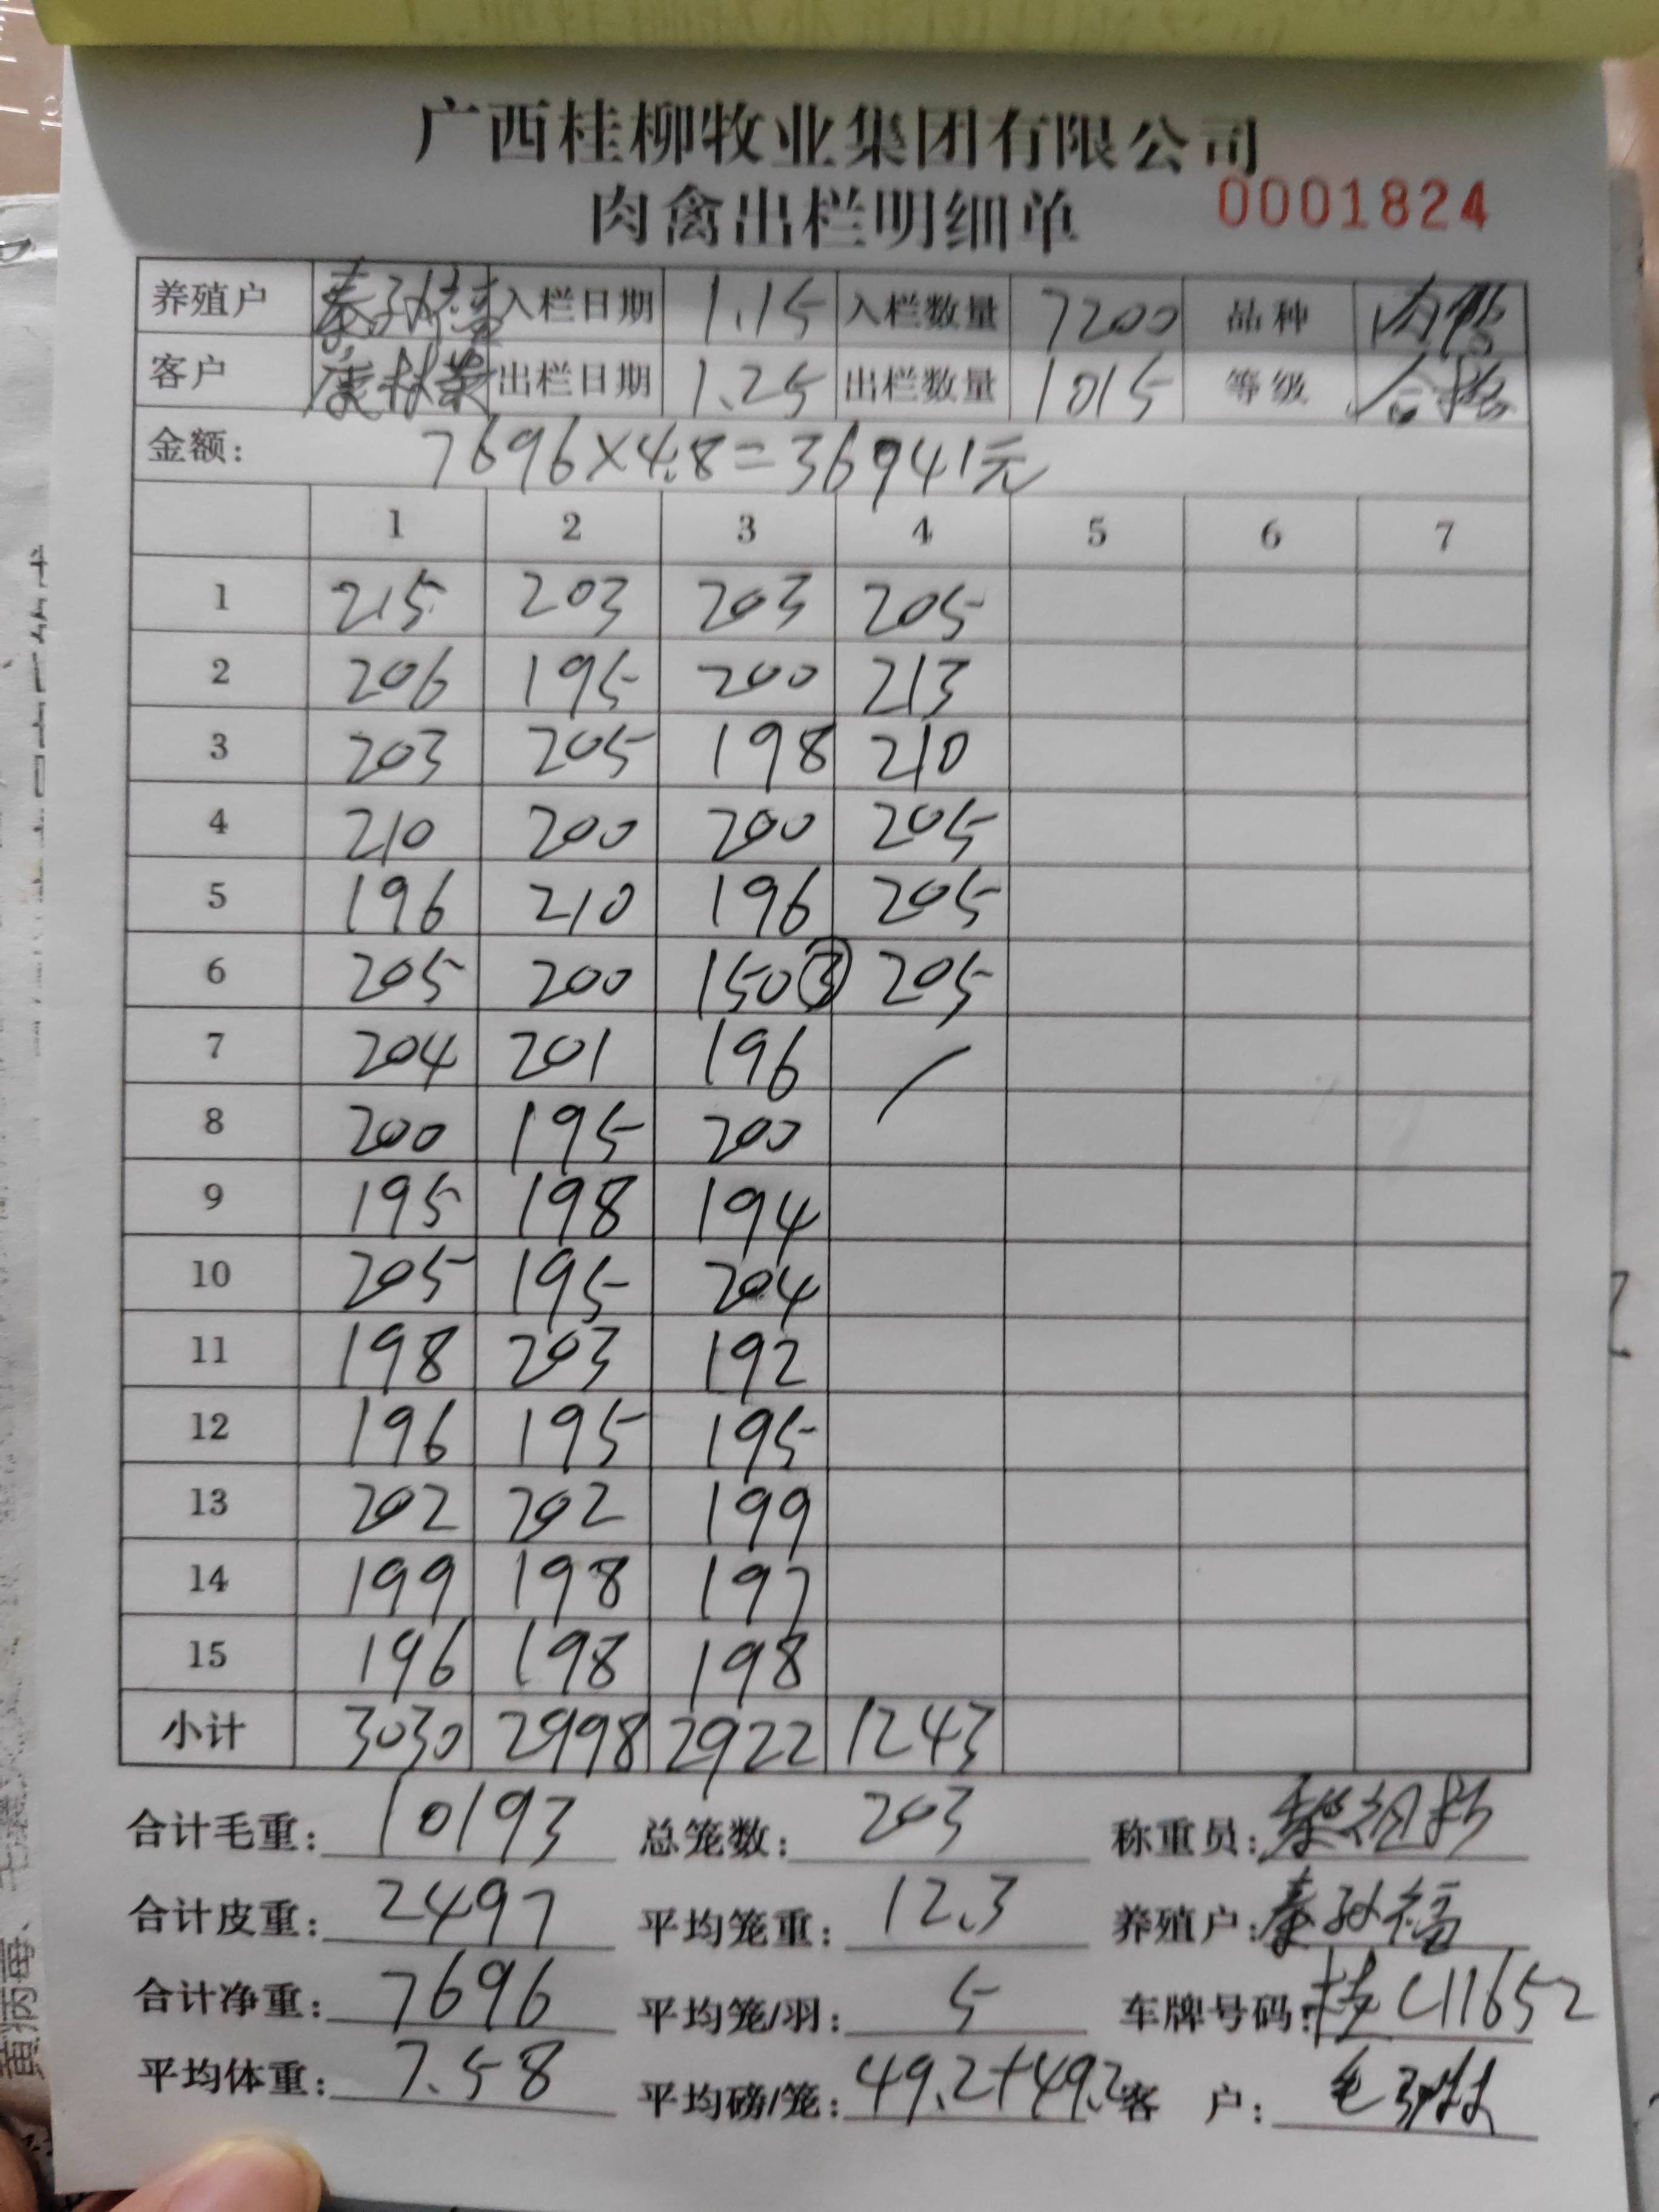 广西桂柳牧业集团有限公司
肉禽出栏明细单 0001824
养殖户 秦孙福 入栏日期 1.15 入栏数量 7200 品种 肉鸭
客户 出栏日期 1.25 出栏数量 1015 等级 合格
金额: 7696×4.8=36941元
1 2 3 4 5 6 7
1 215 203 203 205
2 206 195 200 213
3 203 205 198 210
4 210 200 200 205
5 196 210 196 205
6 205 200 150③ 205
7 204 201 196 /
8 200 195 200
9 195 198 194
10 205 195 204
11 198 203 192
12 196 195 195
13 202 202 199
14 199 198 197
15 196 198 198
小计 3030 2998 2922 1243
合计毛重: 10193 总笼数: 203 称重员:
合计皮重: 2497 平均笼重: 12.3 养殖户: 秦孙福
合计净重: 7696 平均笼/羽: 5 车牌号码: 桂C11652
平均体重: 7.58 平均磅/笼: 49.2+49.2 客 户: